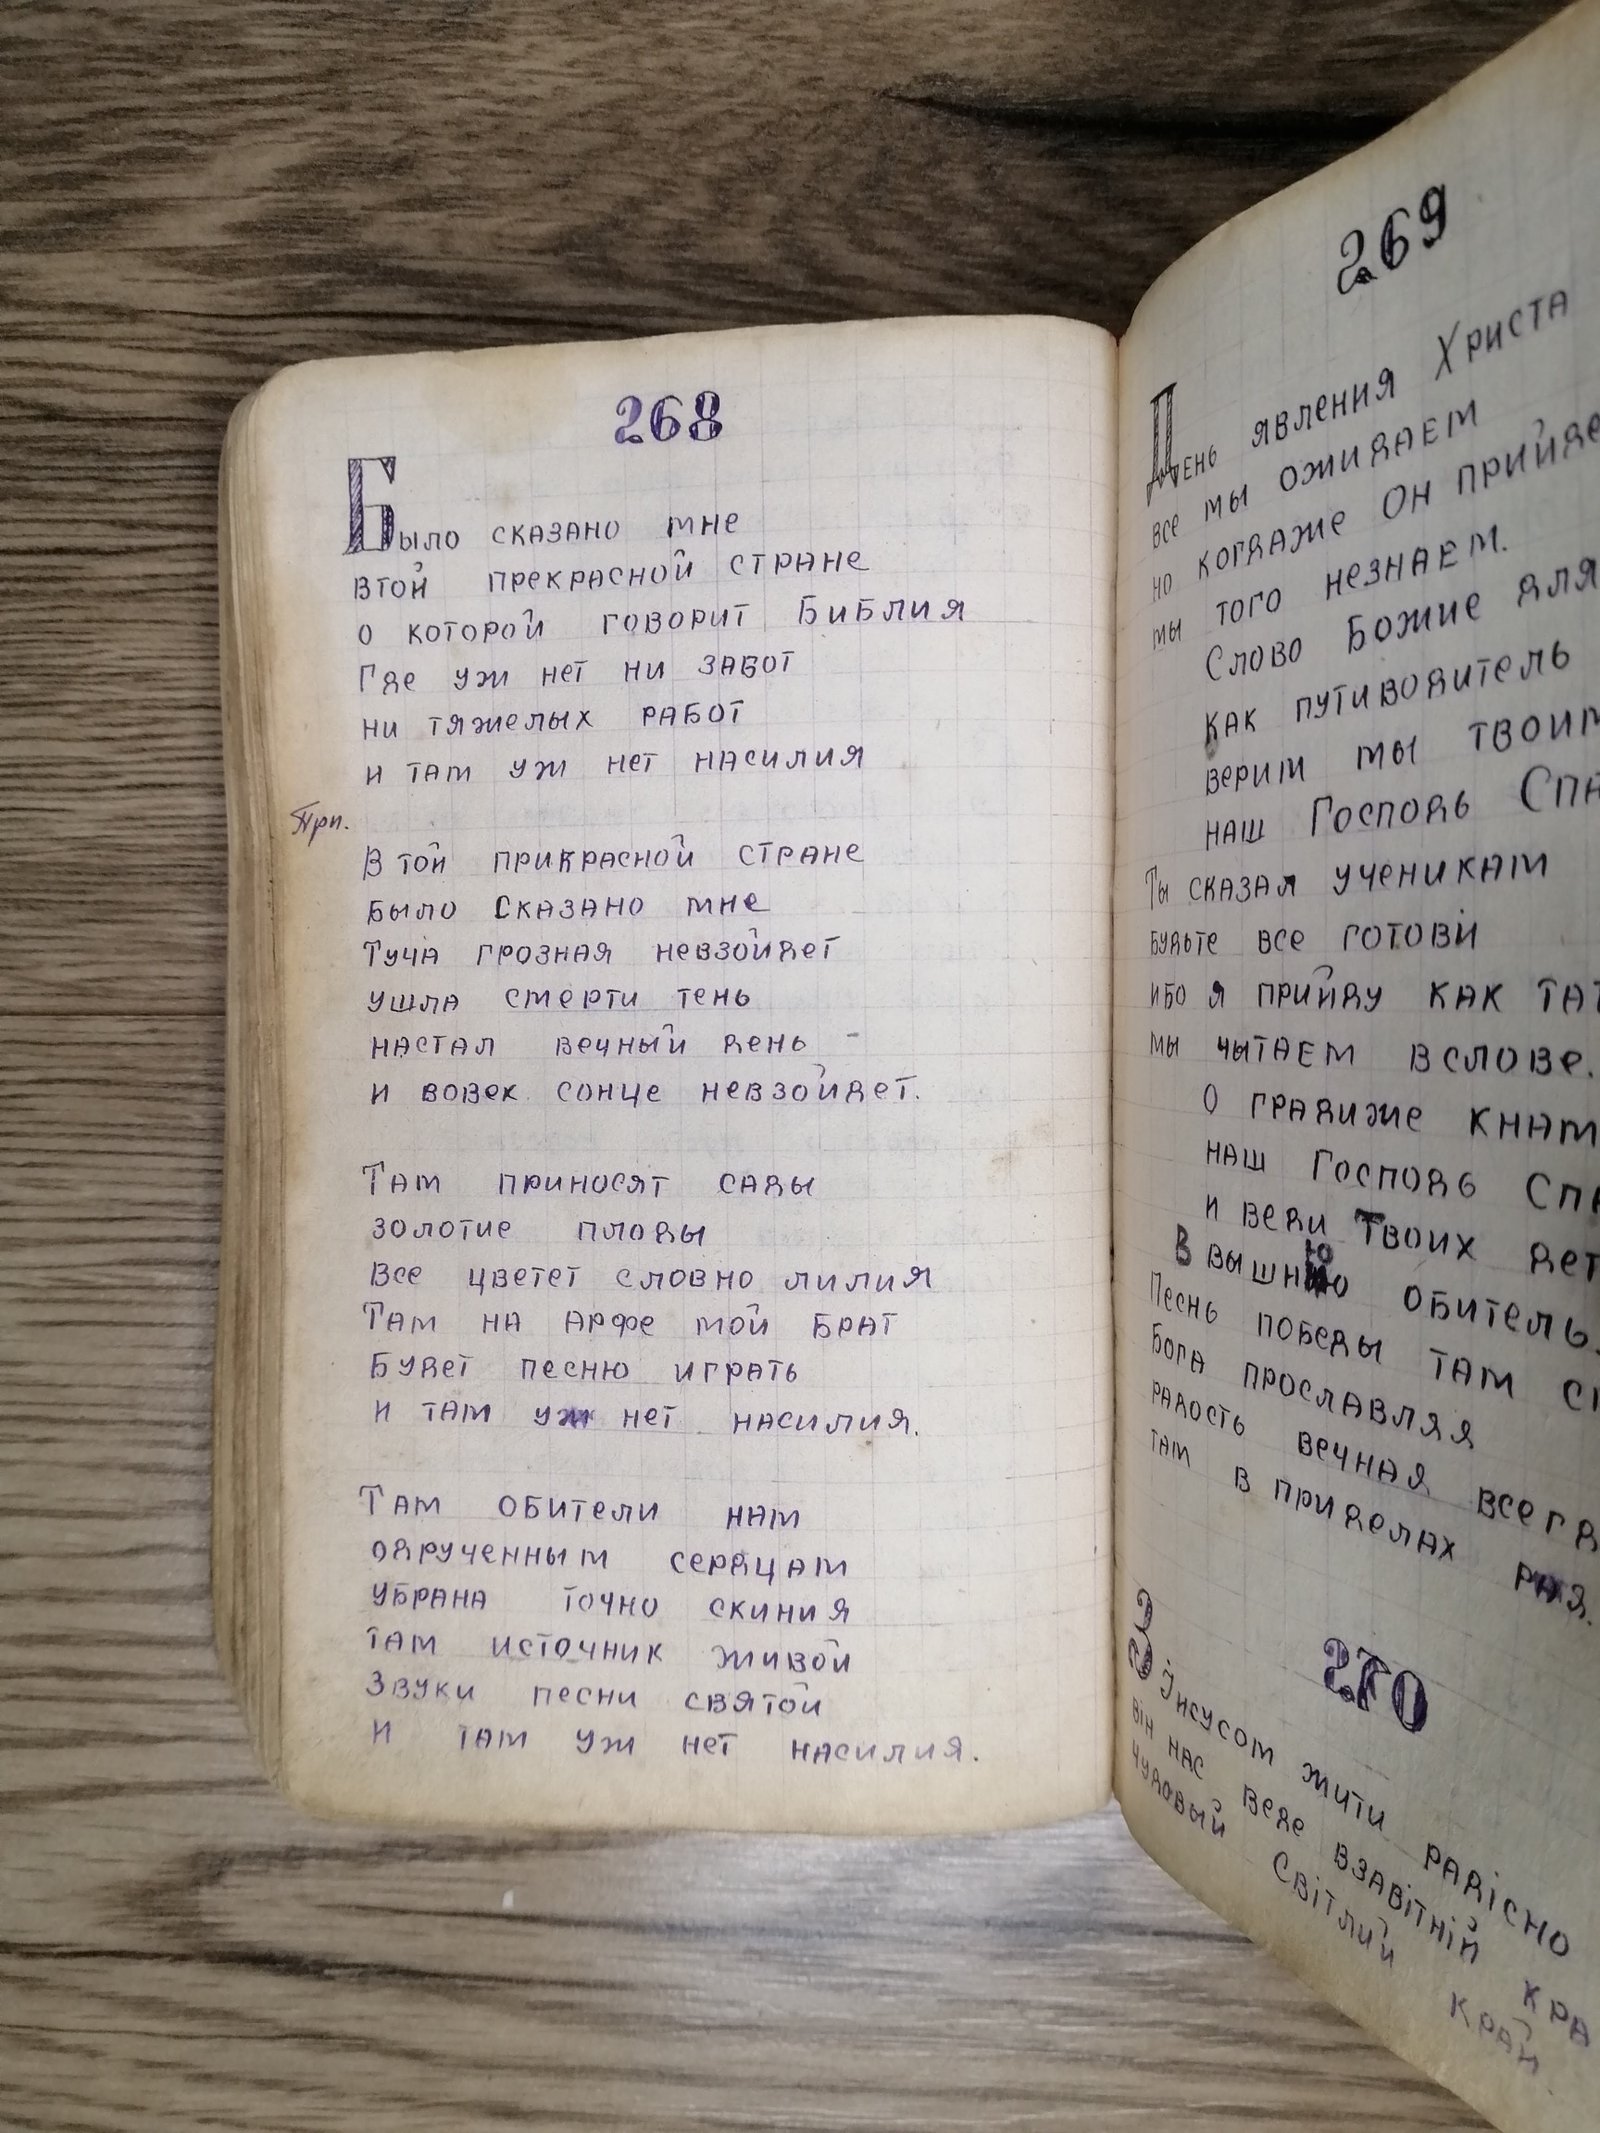 268
Было сказано мне
втой прекрасной стране
о которой говорит Библия
Где уж нет ни забот
ни тяжелых работ
и там уж нет насилия
Прп.
В той прикрасной стране
было сказано мне
Туча грозная невзойдет
ушла смерти тень
настал вечный день
и вовек сонце невзойдет.
Там приносят сады
золотие плоды
Все цветет словно лилия
Там на арфе мой брат
Будет песню играть
и там уж нет насилия.
Там обители нам
одрученным сердцам
убрана точно скиния
там источник живой
Звуки песни святой
и там уж нет насилия.
269
День явления Христа
все мы ожидаем
но когдаже Он прийде
мы того незнаем.
Слово Божие для
как путиводитель
верим мы твоим
наш Господь Спа
Ты сказал ученикам
будьте все готови
ибо я прийду как тат
мы чытаем вслове.
Оградиже кнам
наш Господь Спа
и веди Твоих дет
В вышнюю обитель.
Песнь победы там
Бога прославляя
радость вечная всегд
там в приделах рая.
270
З Ісусом жити радісно
він нас веде взавітній кра
чудовый Світлий край